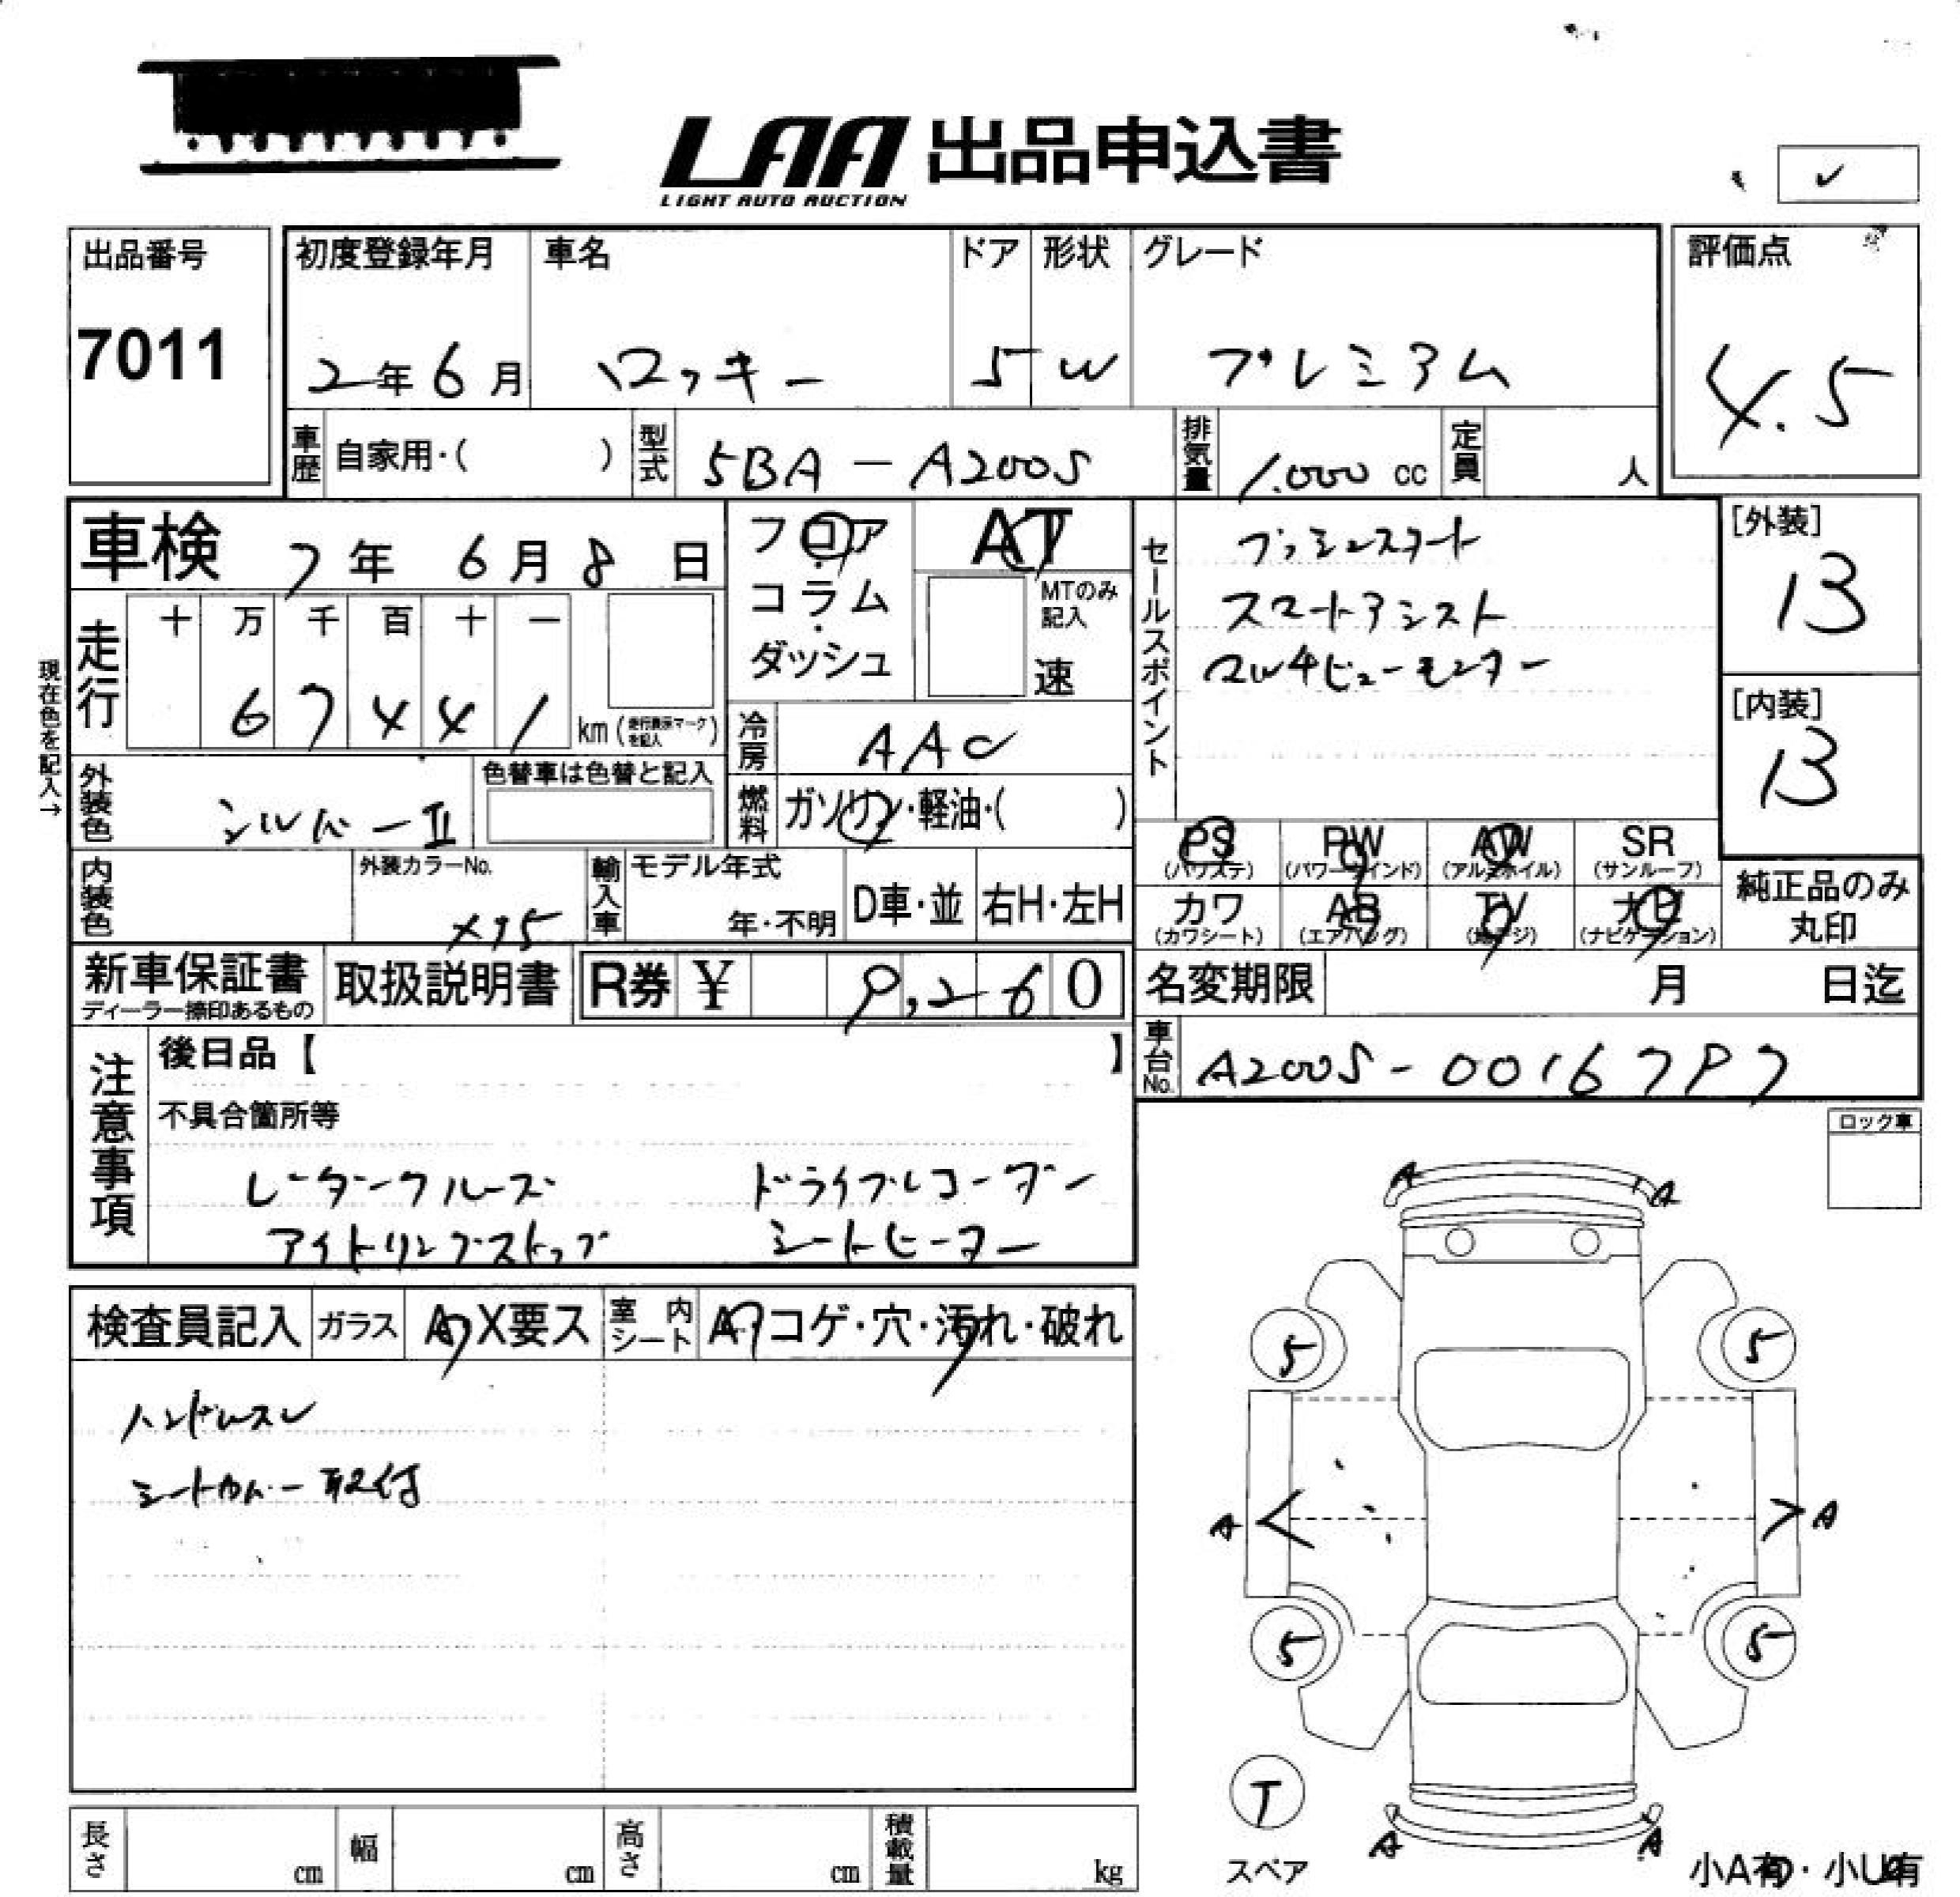 LAA 出品申込書
LIGHT AUTO AUCTION
✓
出品番号
7011
初度登録年月 車名 ドア 形状 グレード
2年 6月 ロッキー 5 W プレミアム
評価点
4.5
車歴 自家用・( ) 型式 5BA-A200S 排気量 1.000 cc 定員 人
車検 7年 6月 8日
フロア
コラム
ダッシュ
AT
MTのみ
記入
速
現在色を記入→
走行 十 万 千 百 十 一
6 7 4 4 1 km (走行表示マークを記入)
冷房 AAC
外装色 シルバーII 色替車は色替と記入
燃料 ガソリン・軽油・( )
セールスポイント
プッシュスタート
スマートアシスト
マルチビューモニター
[外装]
13
[内装]
13
PS (パワステ) PW (パワーウインド) AW (アルミホイル) SR (サンルーフ)
カワ (カワシート) AB (エアバッグ) TV (地デジ) ナビ (ナビゲーション)
純正品のみ
丸印
内装色 外装カラーNo. 輸入車 モデル年式
年・不明 D車・並 右H・左H
新車保証書 取扱説明書 R券 ¥ 9,260
ディーラー捺印あるもの
名変期限 月 日迄
車台No. A200S-0016797
注意事項
後日品【 】
不具合箇所等
レーダークルーズ ドライブレコーダー
アイドリングストップ シートヒーター
ロック車
検査員記入 ガラス A X要ス 室内シート コゲ・穴・汚れ・破れ
ハンドルスレ
シートカバー取付
A A
5 5
A A
5 5
T
スペア
A A
小A有・小U有
長さ cm 幅 cm 高さ cm 積載量 kg